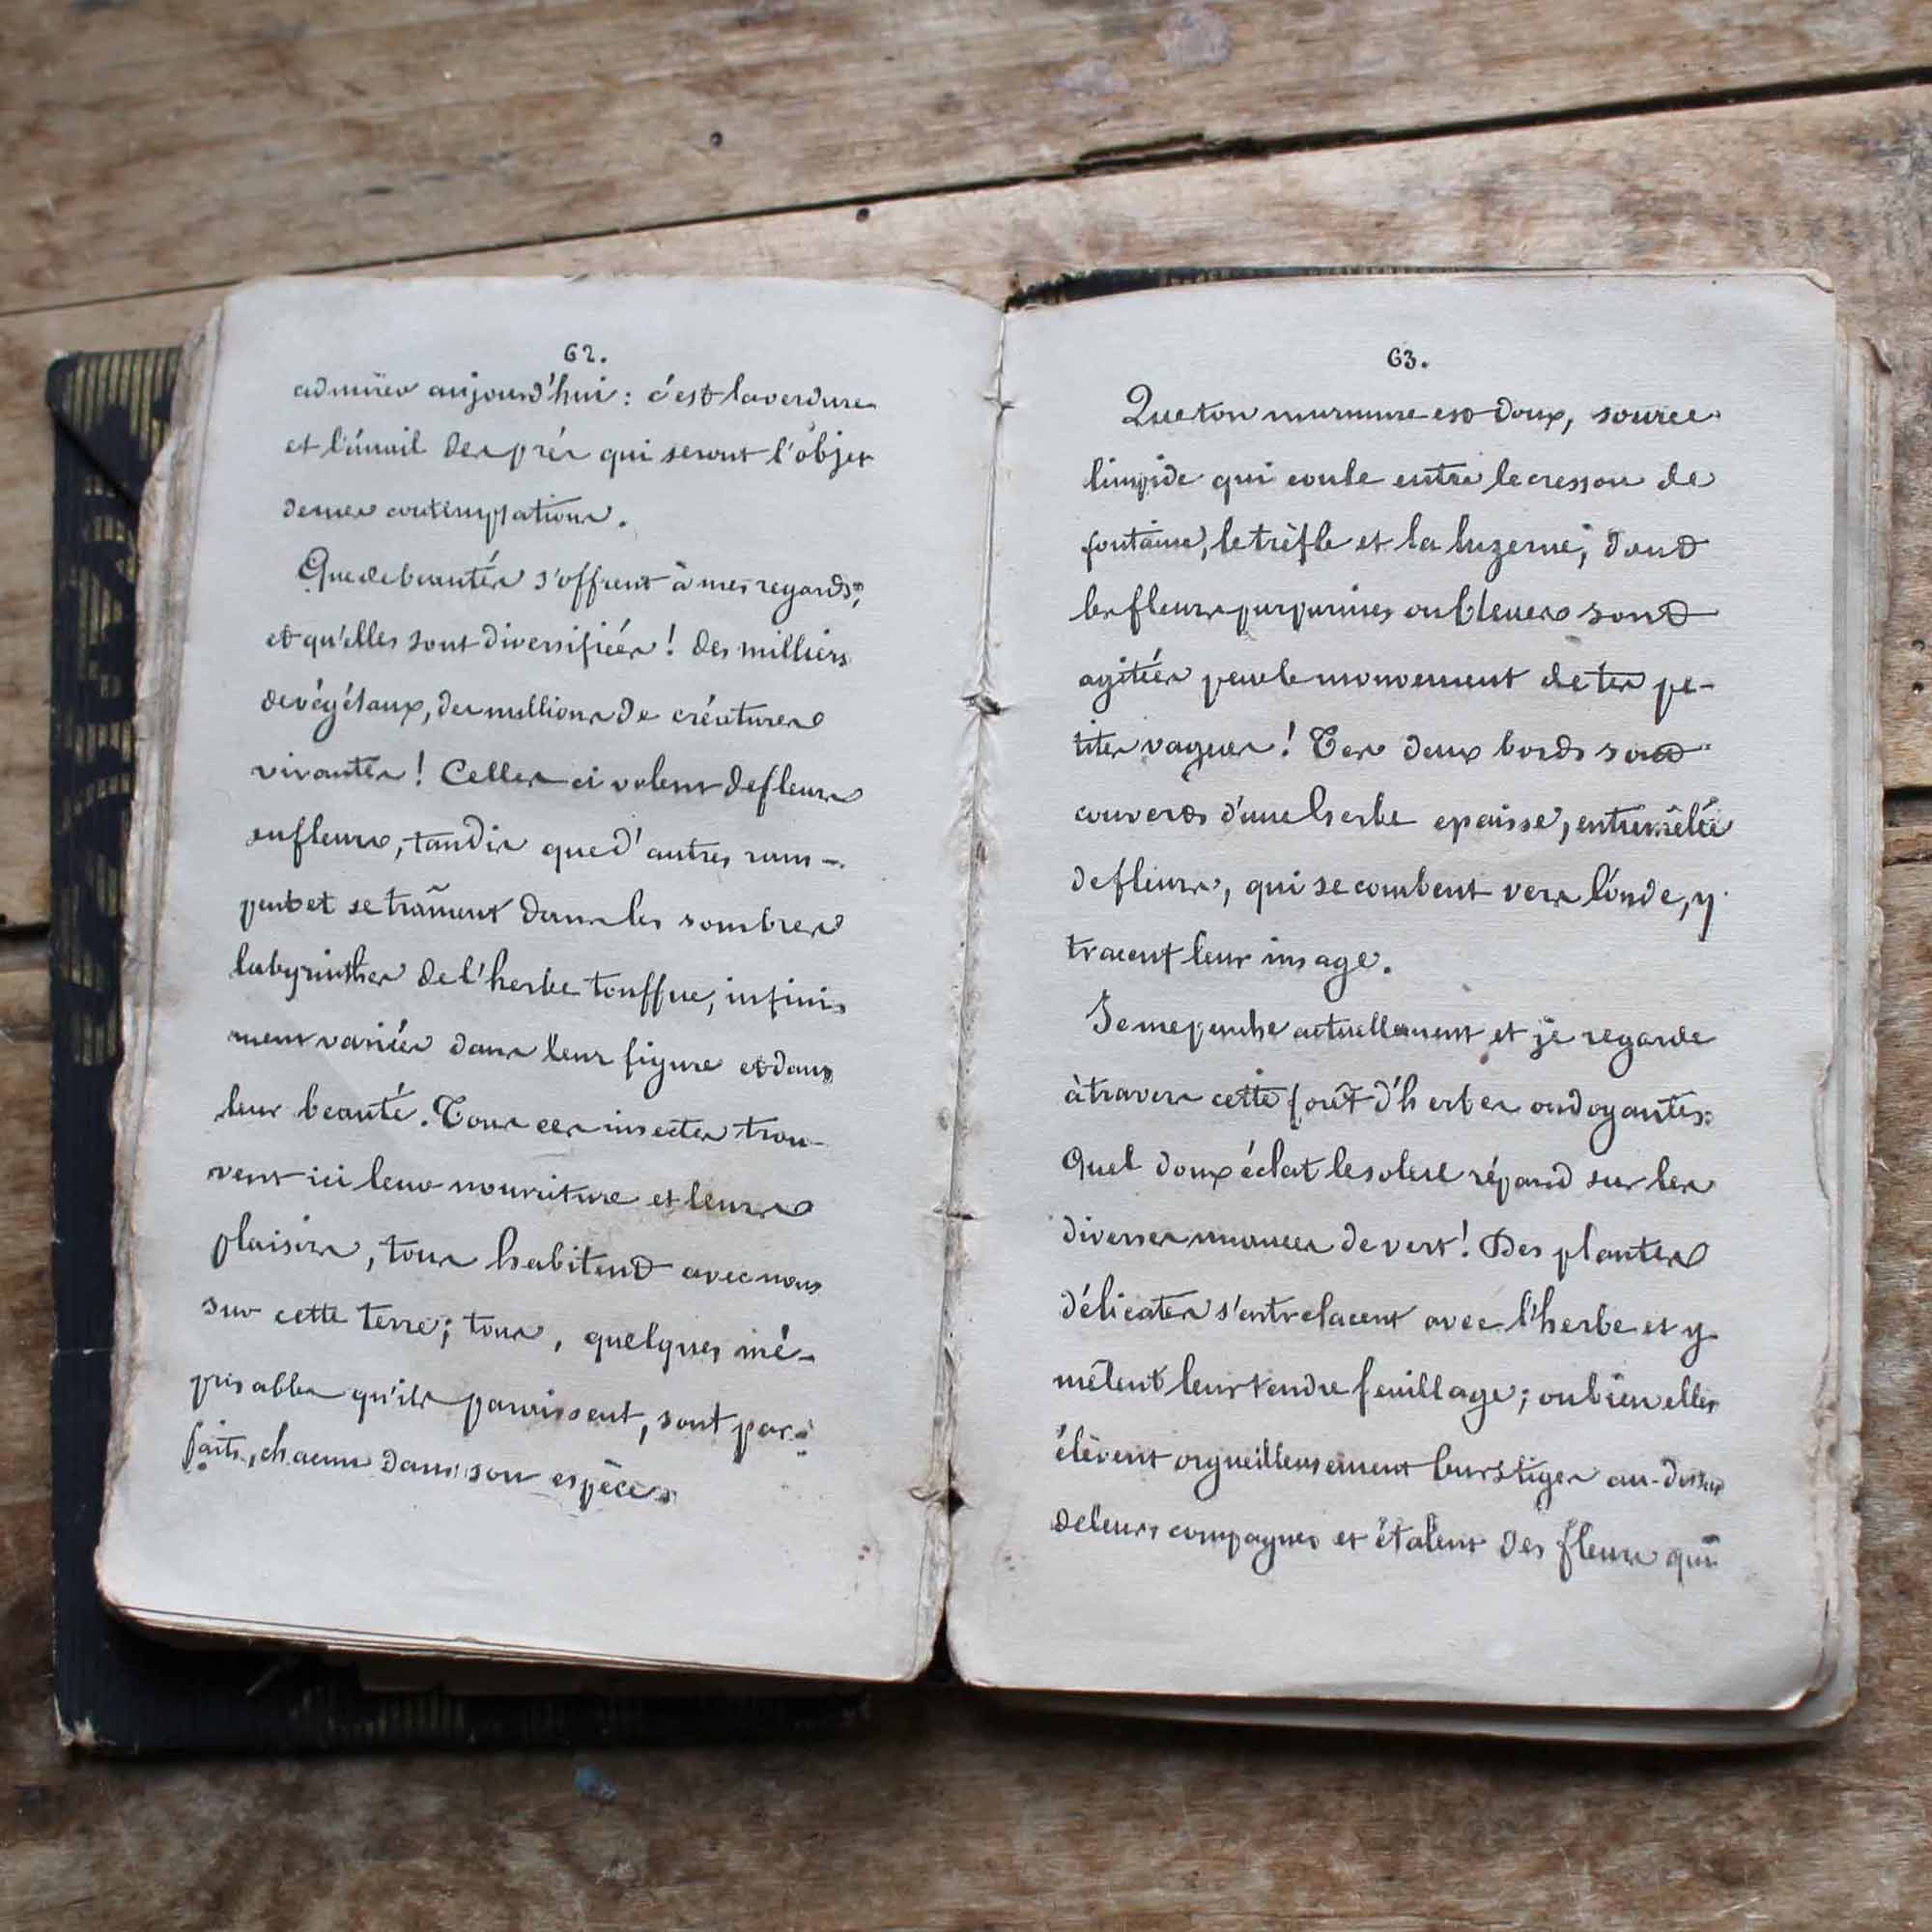 62.
admirer aujourd'hui : c'est la verdure
et l'émail des prés qui seront l'objet
de mes contemplations.
Que de beautés s'offrent à mes regards,
et qu'elles sont diversifiées ! des milliers
de végétaux, des millions de créatures
vivantes ! Celles-ci volent de fleurs
en fleurs, tandis que d'autres ram-
pent et se traînent dans les sombres
labyrinthes de l'herbe touffue, infini-
ment variées dans leur figure et dans
leur beauté. Tous ces insectes trou-
vent ici leur nourriture et leurs
plaisirs, tous habitent avec nous
sur cette terre; tous, quelques mé-
prisables qu'ils paraissent, sont par-
faits, chacun dans son espèce.
63.
Que ton murmure est doux, source
limpide qui coule entre le cresson de
fontaine, le trèfle et la luzerne, dont
les fleurs purpurines ou bleues sont
agitées par le mouvement de tes pe-
tites vagues ! Tes deux bords sont
couverts d'une herbe epaisse, entremêlée
de fleurs, qui se combent vers l'onde, y
tracent leur image.
Je me penche actuellement et je regarde
à travers cette forêt d'herbes ondoyantes:
Quel doux éclat le soleil répand sur les
diverses nuances de vert ! Des plantes
délicates s'entrelacent avec l'herbe et y
mêlent leur tendre feuillage; ou bien elles
élèvent orgueilleusement leurs tiges au-dessus
de leurs compagnes et étalent des fleurs qui